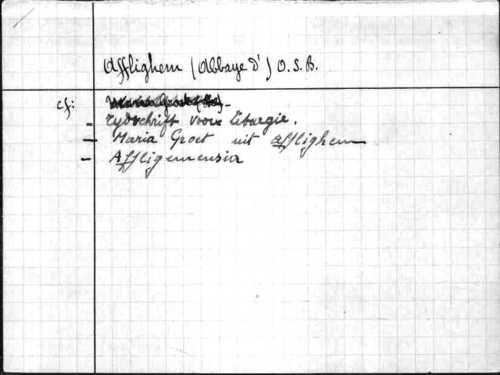 Afflighem (Abbaye d') O.S.B.
cf:
- Tydschrift voor Liturgie.
- Maria Groet uit Afflighem
- Affligemensia